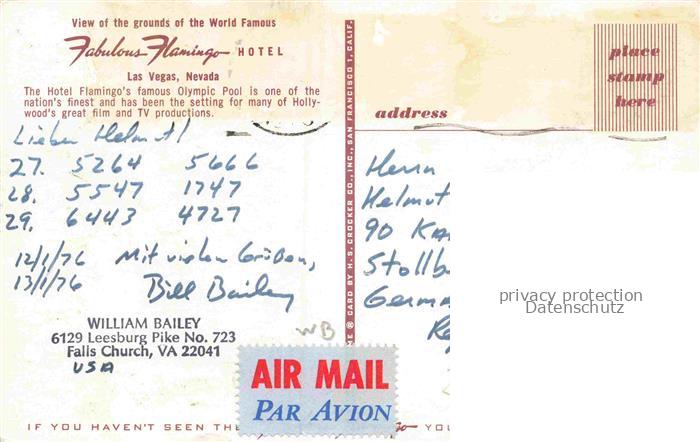 View of the grounds of the World Famous
Fabulous Flamingo HOTEL
Las Vegas, Nevada
The Hotel Flamingo's famous Olympic Pool is one of the
nation's finest and has been the setting for many of Holly-
wood's great film and TV productions.
place
stamp
here
address
Lieber Helmut!
27. 5264 5666
28. 5547 1747
29. 6443 4727
12/1/76 Mit vielen Grüßen,
13/1/76 Bill Bailey
WILLIAM BAILEY
6129 Leesburg Pike No. 723
Falls Church, VA 22041
USA
WB
AIR MAIL
PAR AVION
CARD BY H. S. CROCKER CO., INC., SAN FRANCISCO 1, CALIF.
Herrn
Helmut
90
Stollb
Germa
privacy protection
Datenschutz
IF YOU HAVEN'T SEEN THE